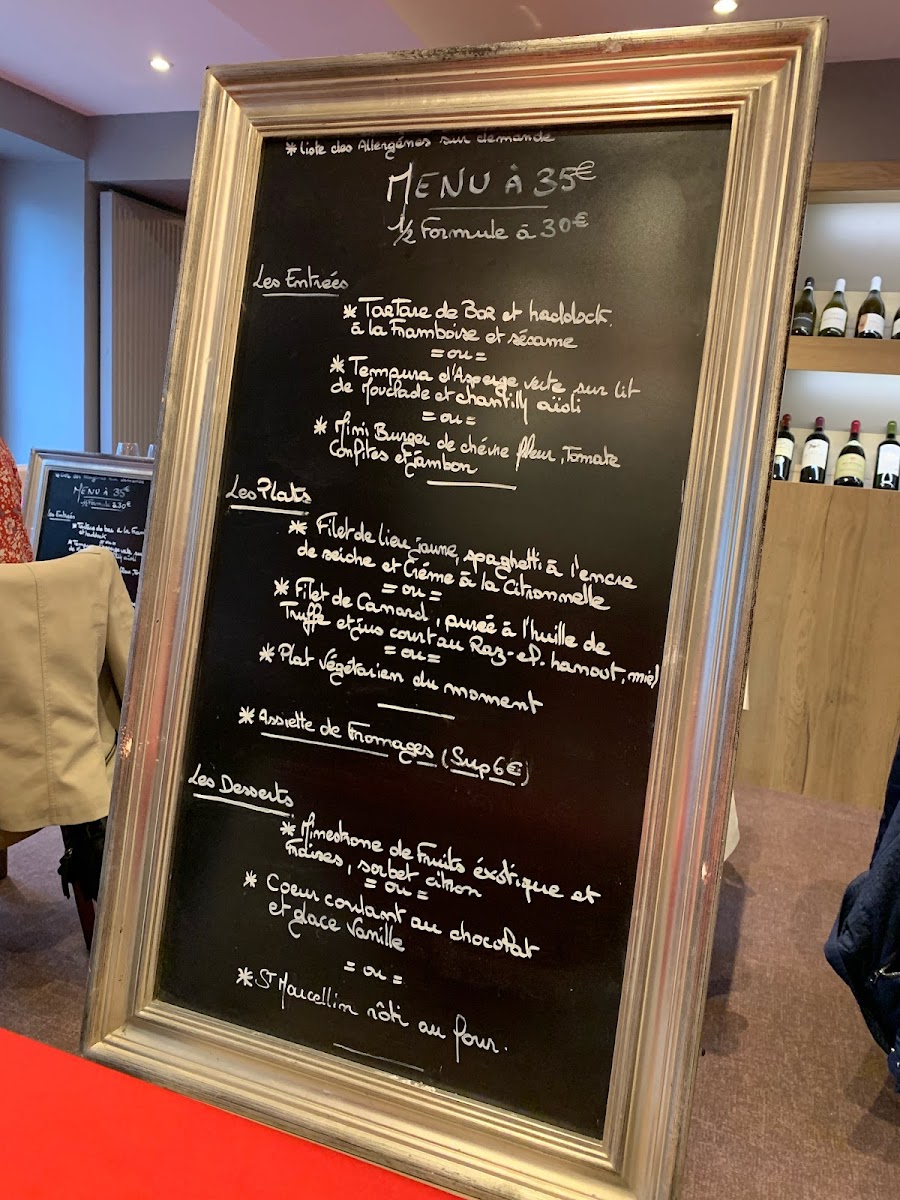 * Liste des Allergénes sur demande
MENU À 35€
1/2 Formule à 30€
Les Entrées
* Tartare de Bar et haddock
à la Framboise et sésame
= ou =
* Tempura d'Asperge verte sur lit
de Mouclade et chantilly aïoli
= ou =
* Mini Burger de chévre fleur, Tomate
Confites et jambon
Les Plats
* Filet de lieu jaune, spaghetti à l'encre
de seiche et Créme à la Citronnelle
= ou =
* Filet de Canard, purée à l'huile de
Truffe et jus court au Raz-el-hanout, miel
= ou =
* Plat végétarien du moment
* Assiette de Fromages (Sup 6€)
Les Desserts
* Minestrone de Fruits éxotique et
Fraises, sorbet citron
= ou =
* Coeur coulant au chocolat
et glace Vanille
= ou =
* St Marcellin rôti au four.
MENU À 35€
1/2 Formule à 30€
Les Entrées